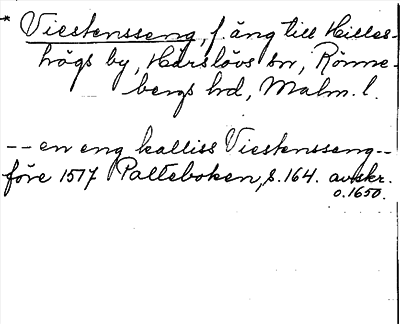 * Viestensseng, f. äng till Hilles-
högs by, Härslövs sn, Rönne-
bergs hd, Malm. l.
-- en eng kalliss Viestensseng --
före 1517 Palteboken, s. 164. avskr.
o. 1650.